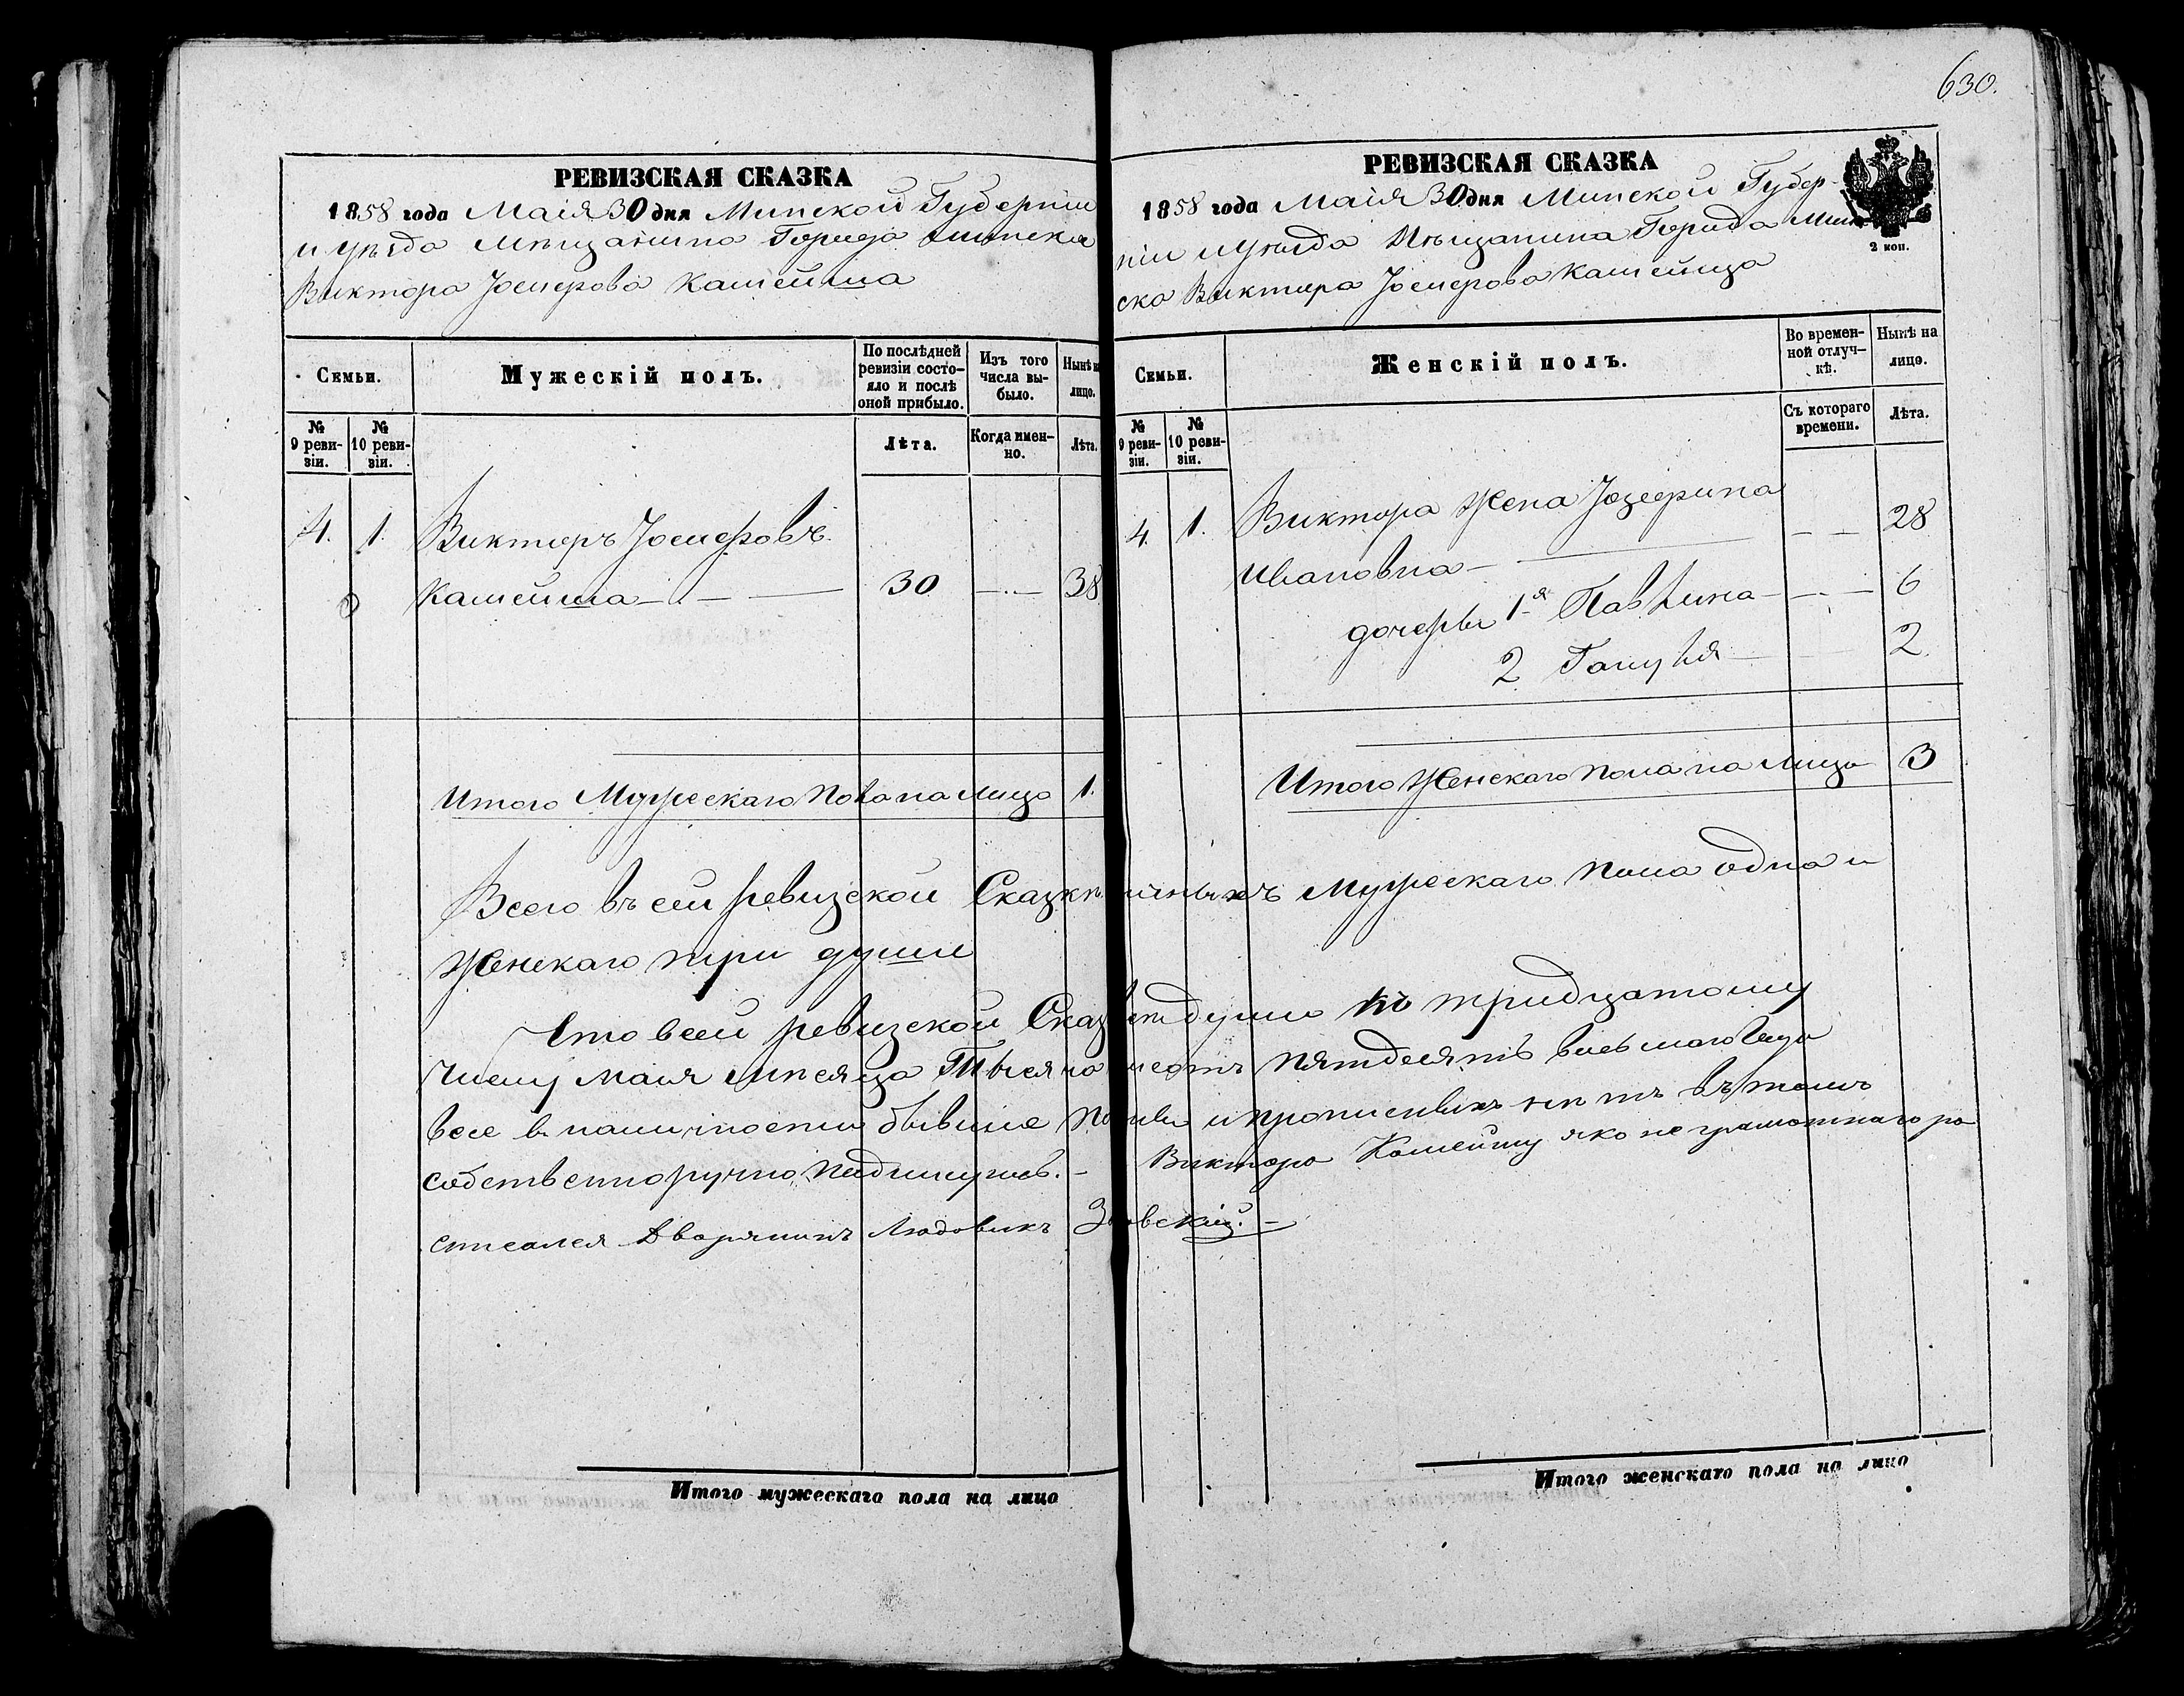 630.
РЕВИЗСКАЯ СКАЗКА
1858 года Маія 30 дня Минской Губерніи
и уѣзда Мѣщанина Города Минска
Виктора Іосифова Кашейша
Семьи.
Мужескій полъ.
По послѣдней ревизіи состояло и послѣ оной прибыло.
Изъ того числа выбыло.
Нынѣ на лицо.
№ 9 ревизіи.
№ 10 ревизіи.
Лѣта.
Когда именно.
Лѣта.
4. 1. Викторъ Іосифовъ
Кашейша 30 38
Итого Мужескаго пола на лицо 1.
РЕВИЗСКАЯ СКАЗКА
2 коп.
1858 года Маія 30 дня Минской Губер-
ніи и уѣзда Мѣщанина Города Мин
ска Виктора Іосифова Кашейша
Семьи.
Женскій полъ.
Во временной отлучкѣ.
Нынѣ на лицо.
№ 9 ревизіи.
№ 10 ревизіи.
Съ котораго времени.
Лѣта.
4. 1. Виктора жена Юзефина
Ивановна 28
дочери 1я Павлина 6
2 Гануля 2
Итого Женскаго пола на лицо 3
Всего въ сей ревизской Сказкѣ наличныхъ Мужескаго пола одна и
Женскаго три души
Что въ сей ревизской Сказкѣ души по тридцатому
число Маія мѣсяца Тысяча пятдесятъ восьмаго года
все в наличности бывшіе и прописныхъ нѣтъ въ томъ
собственноручно подпишусь. – Виктора Кашейшу яко неграмотнаго ро
списался Дворянинъ Людовикъ
Итого мужескаго пола на лицо
Итого женскаго пола на лицо